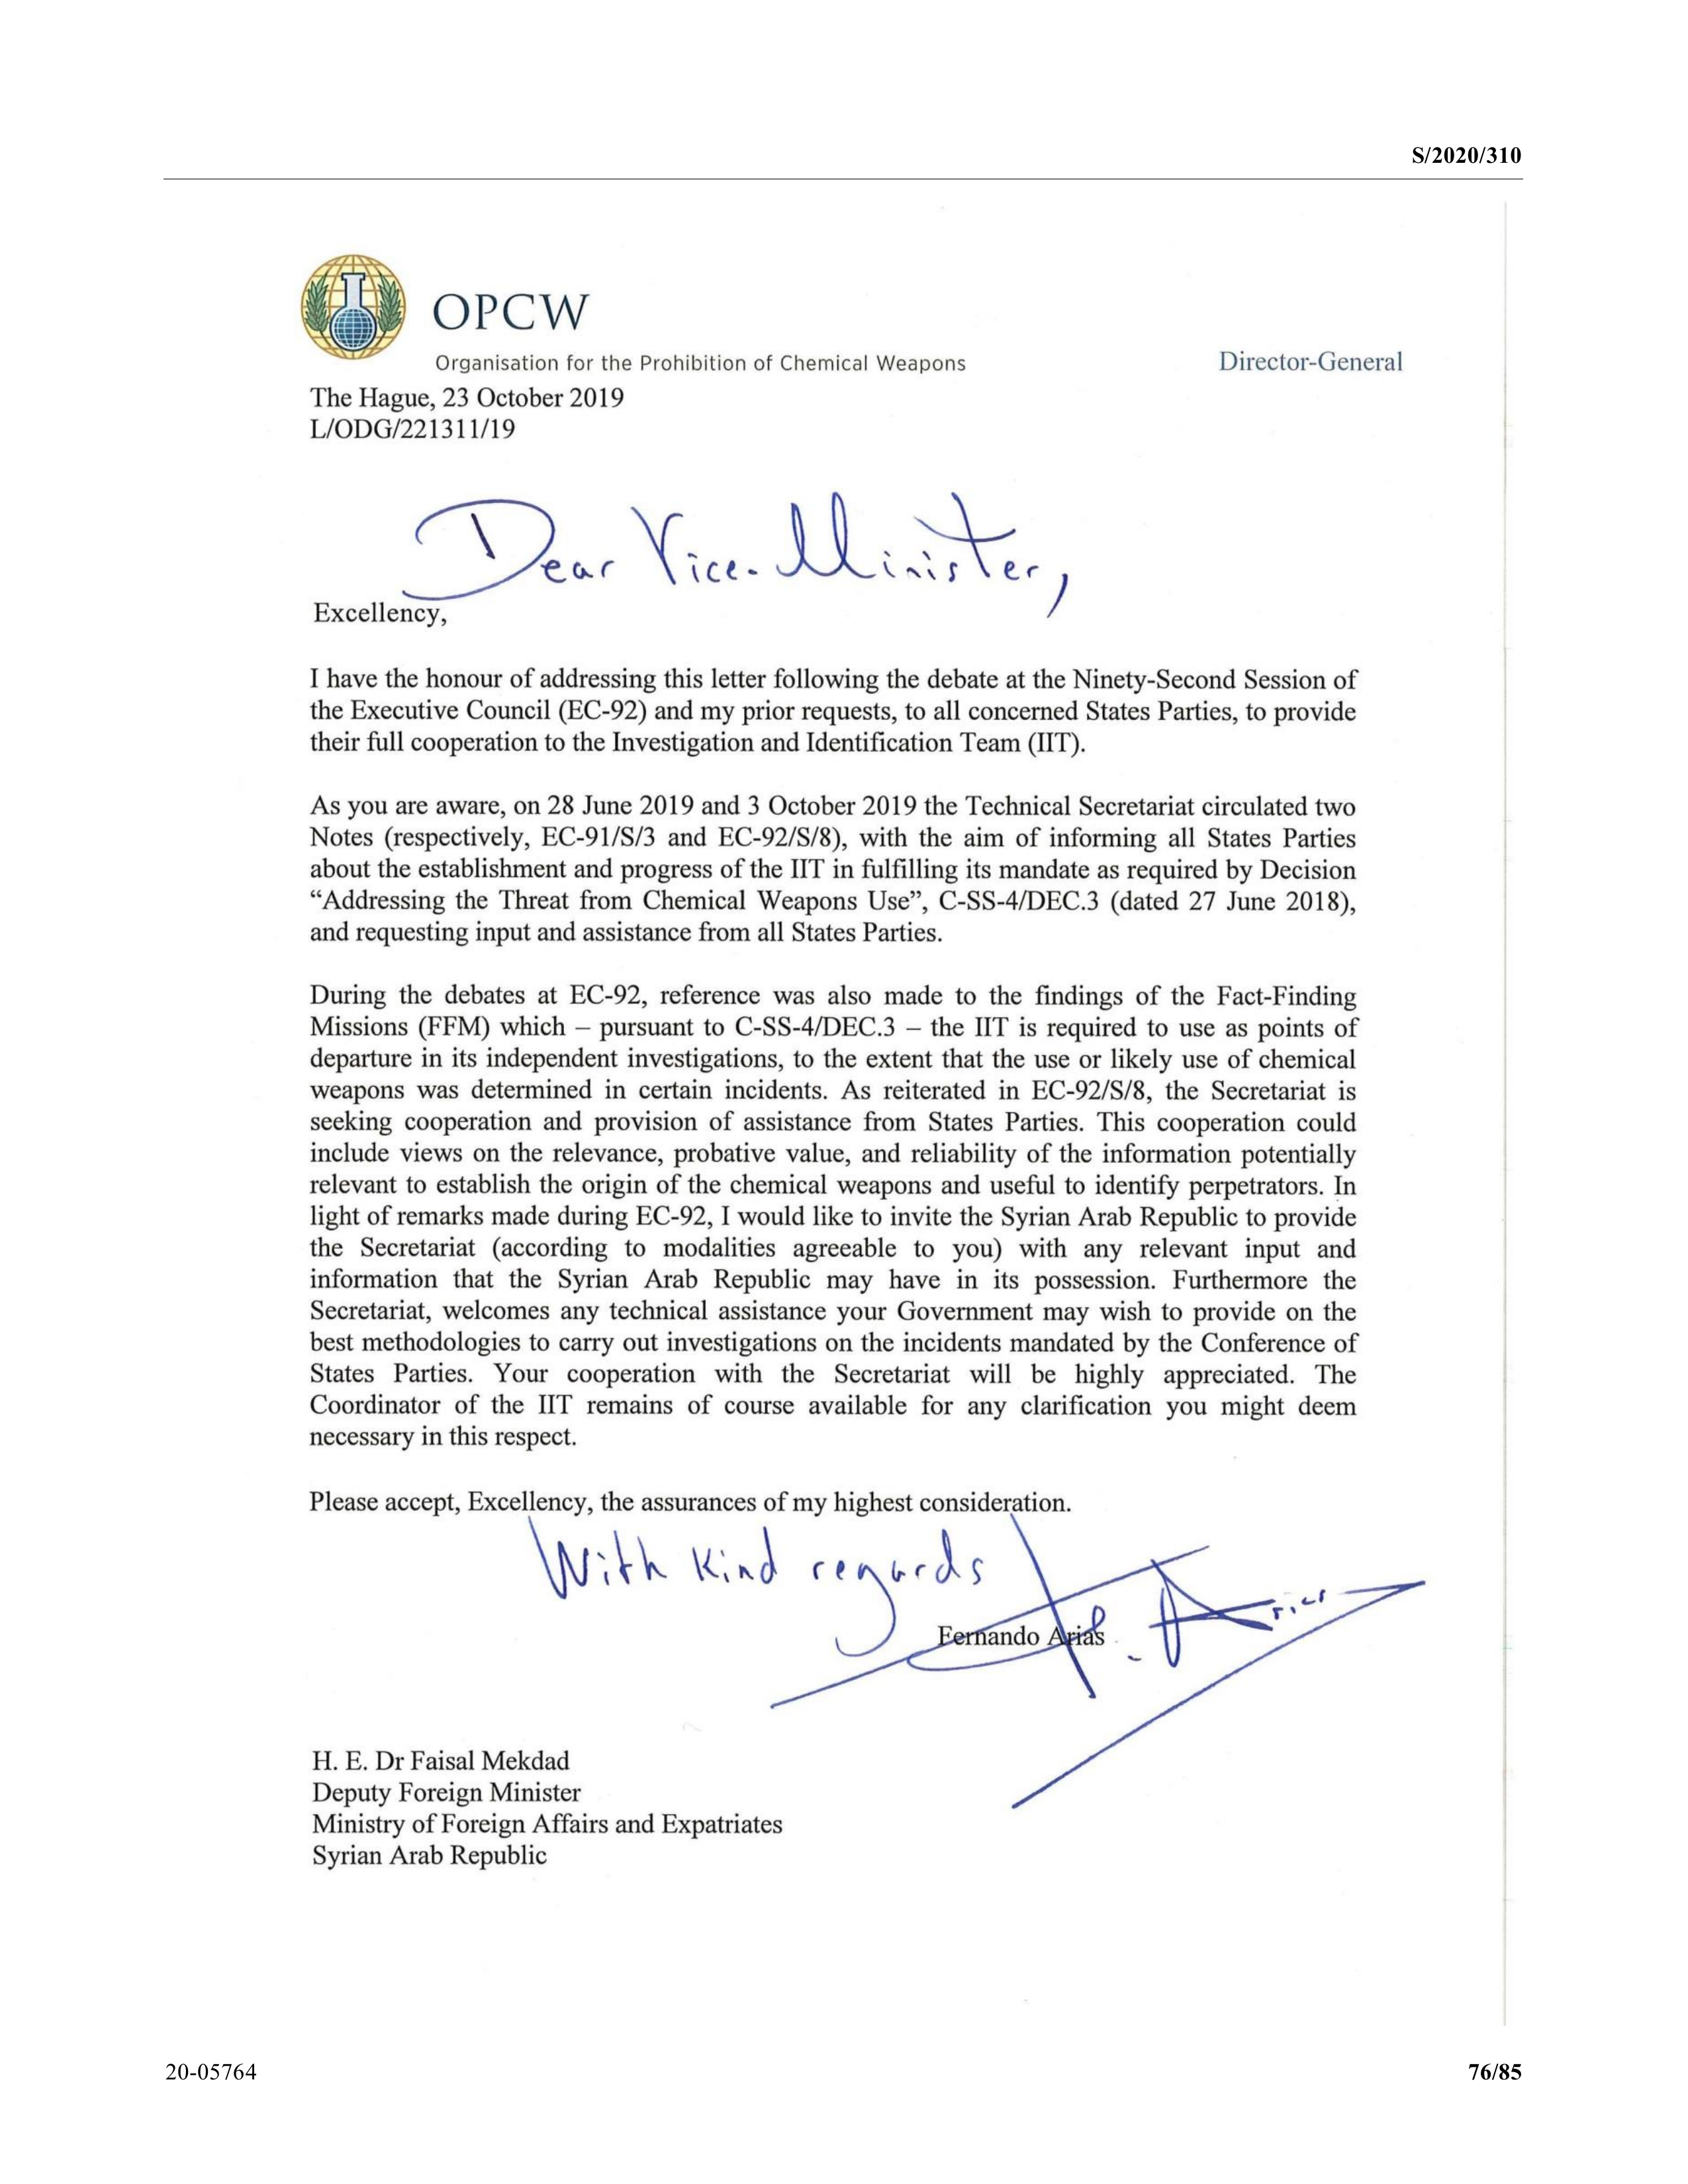 S/2020/310
OPCW
Organisation for the Prohibition of Chemical Weapons
Director-General
The Hague, 23 October 2019
L/ODG/221311/19
Dear Vice-Minister,
Excellency,
I have the honour of addressing this letter following the debate at the Ninety-Second Session of
the Executive Council (EC-92) and my prior requests, to all concerned States Parties, to provide
their full cooperation to the Investigation and Identification Team (IIT).
As you are aware, on 28 June 2019 and 3 October 2019 the Technical Secretariat circulated two
Notes (respectively, EC-91/S/3 and EC-92/S/8), with the aim of informing all States Parties
about the establishment and progress of the IIT in fulfilling its mandate as required by Decision
“Addressing the Threat from Chemical Weapons Use”, C-SS-4/DEC.3 (dated 27 June 2018),
and requesting input and assistance from all States Parties.
During the debates at EC-92, reference was also made to the findings of the Fact-Finding
Missions (FFM) which – pursuant to C-SS-4/DEC.3 – the IIT is required to use as points of
departure in its independent investigations, to the extent that the use or likely use of chemical
weapons was determined in certain incidents. As reiterated in EC-92/S/8, the Secretariat is
seeking cooperation and provision of assistance from States Parties. This cooperation could
include views on the relevance, probative value, and reliability of the information potentially
relevant to establish the origin of the chemical weapons and useful to identify perpetrators. In
light of remarks made during EC-92, I would like to invite the Syrian Arab Republic to provide
the Secretariat (according to modalities agreeable to you) with any relevant input and
information that the Syrian Arab Republic may have in its possession. Furthermore the
Secretariat, welcomes any technical assistance your Government may wish to provide on the
best methodologies to carry out investigations on the incidents mandated by the Conference of
States Parties. Your cooperation with the Secretariat will be highly appreciated. The
Coordinator of the IIT remains of course available for any clarification you might deem
necessary in this respect.
Please accept, Excellency, the assurances of my highest consideration.
With kind regards
Fernando Arias
F. Arias
H. E. Dr Faisal Mekdad
Deputy Foreign Minister
Ministry of Foreign Affairs and Expatriates
Syrian Arab Republic
20-05764
76/85